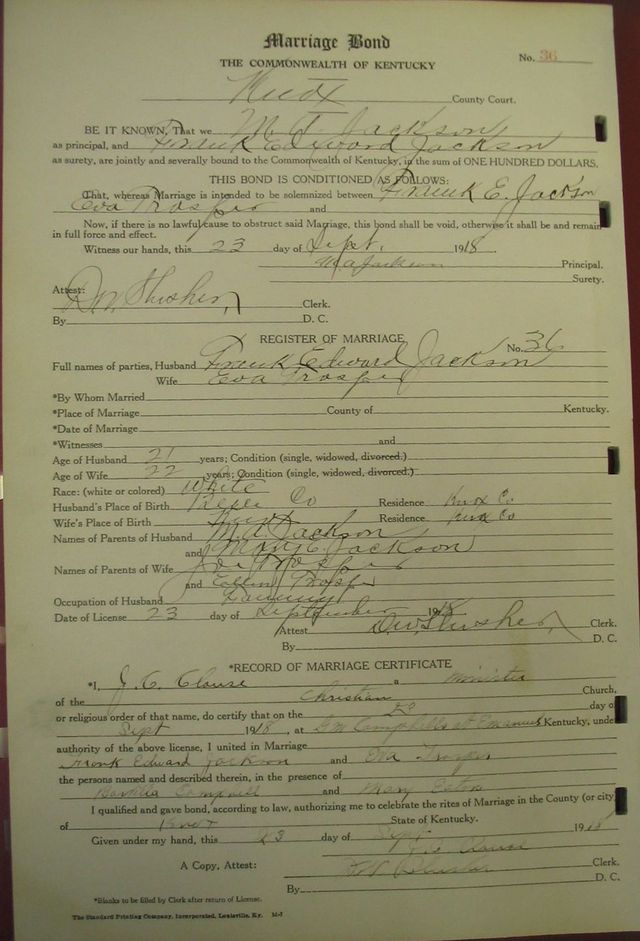 Marriage Bond
No. 36
THE COMMONWEALTH OF KENTUCKY
Knox County Court.
BE IT KNOWN, That we M. A. Jackson
as principal, and Frank Edward Jackson
as surety, are jointly and severally bound to the Commonwealth of Kentucky, in the sum of ONE HUNDRED DOLLARS.
THIS BOND IS CONDITIONED AS FOLLOWS:
That, whereas Marriage is intended to be solemnized between Frank E. Jackson
Eva Trosper and
Now, if there is no lawful cause to obstruct said Marriage, this bond shall be void, otherwise it shall be and remain
in full force and effect.
Witness our hands, this 23 day of Sept. 1918
M A Jackson Principal.
Surety.
Attest:
D.W. Slusher, Clerk.
By D. C.
REGISTER OF MARRIAGE
No. 36
Full names of parties, Husband Frank Edward Jackson
Wife Eva Trosper
*By Whom Married
*Place of Marriage County of Kentucky.
*Date of Marriage
*Witnesses and
Age of Husband 21 years; Condition (single, widowed, divorced.)
Age of Wife 22 years; Condition (single, widowed, divorced.)
Race: (white or colored) White
Husband's Place of Birth Co Residence Knox Co
Wife's Place of Birth Knox Residence Knox Co
Names of Parents of Husband M.A. Jackson
and Mary E. Jackson
Names of Parents of Wife Joe Trosper
and Ellen Trosper
Occupation of Husband Farming
Date of License 23 day of September 1918
Attest D.W. Slusher, Clerk.
By D. C.
*RECORD OF MARRIAGE CERTIFICATE
*I, J. C. Clouse a minister
of the Christian Church,
or religious order of that name, do certify that on the day of
Sept 1918, at Campbells at Emanuel Kentucky, under
authority of the above license, I united in Marriage
Frank Edward Jackson and Eva Trosper
the persons named and described therein, in the presence of
Campbell and Mary Eaton
I qualified and gave bond, according to law, authorizing me to celebrate the rites of Marriage in the County (or city)
of Knox State of Kentucky.
Given under my hand, this 23 day of Sept. 1918
Clouse
A Copy, Attest: Slusher Clerk.
By D. C.
*Blanks to be filled by Clerk after return of License.
The Standard Printing Company, Incorporated, Louisville, Ky.